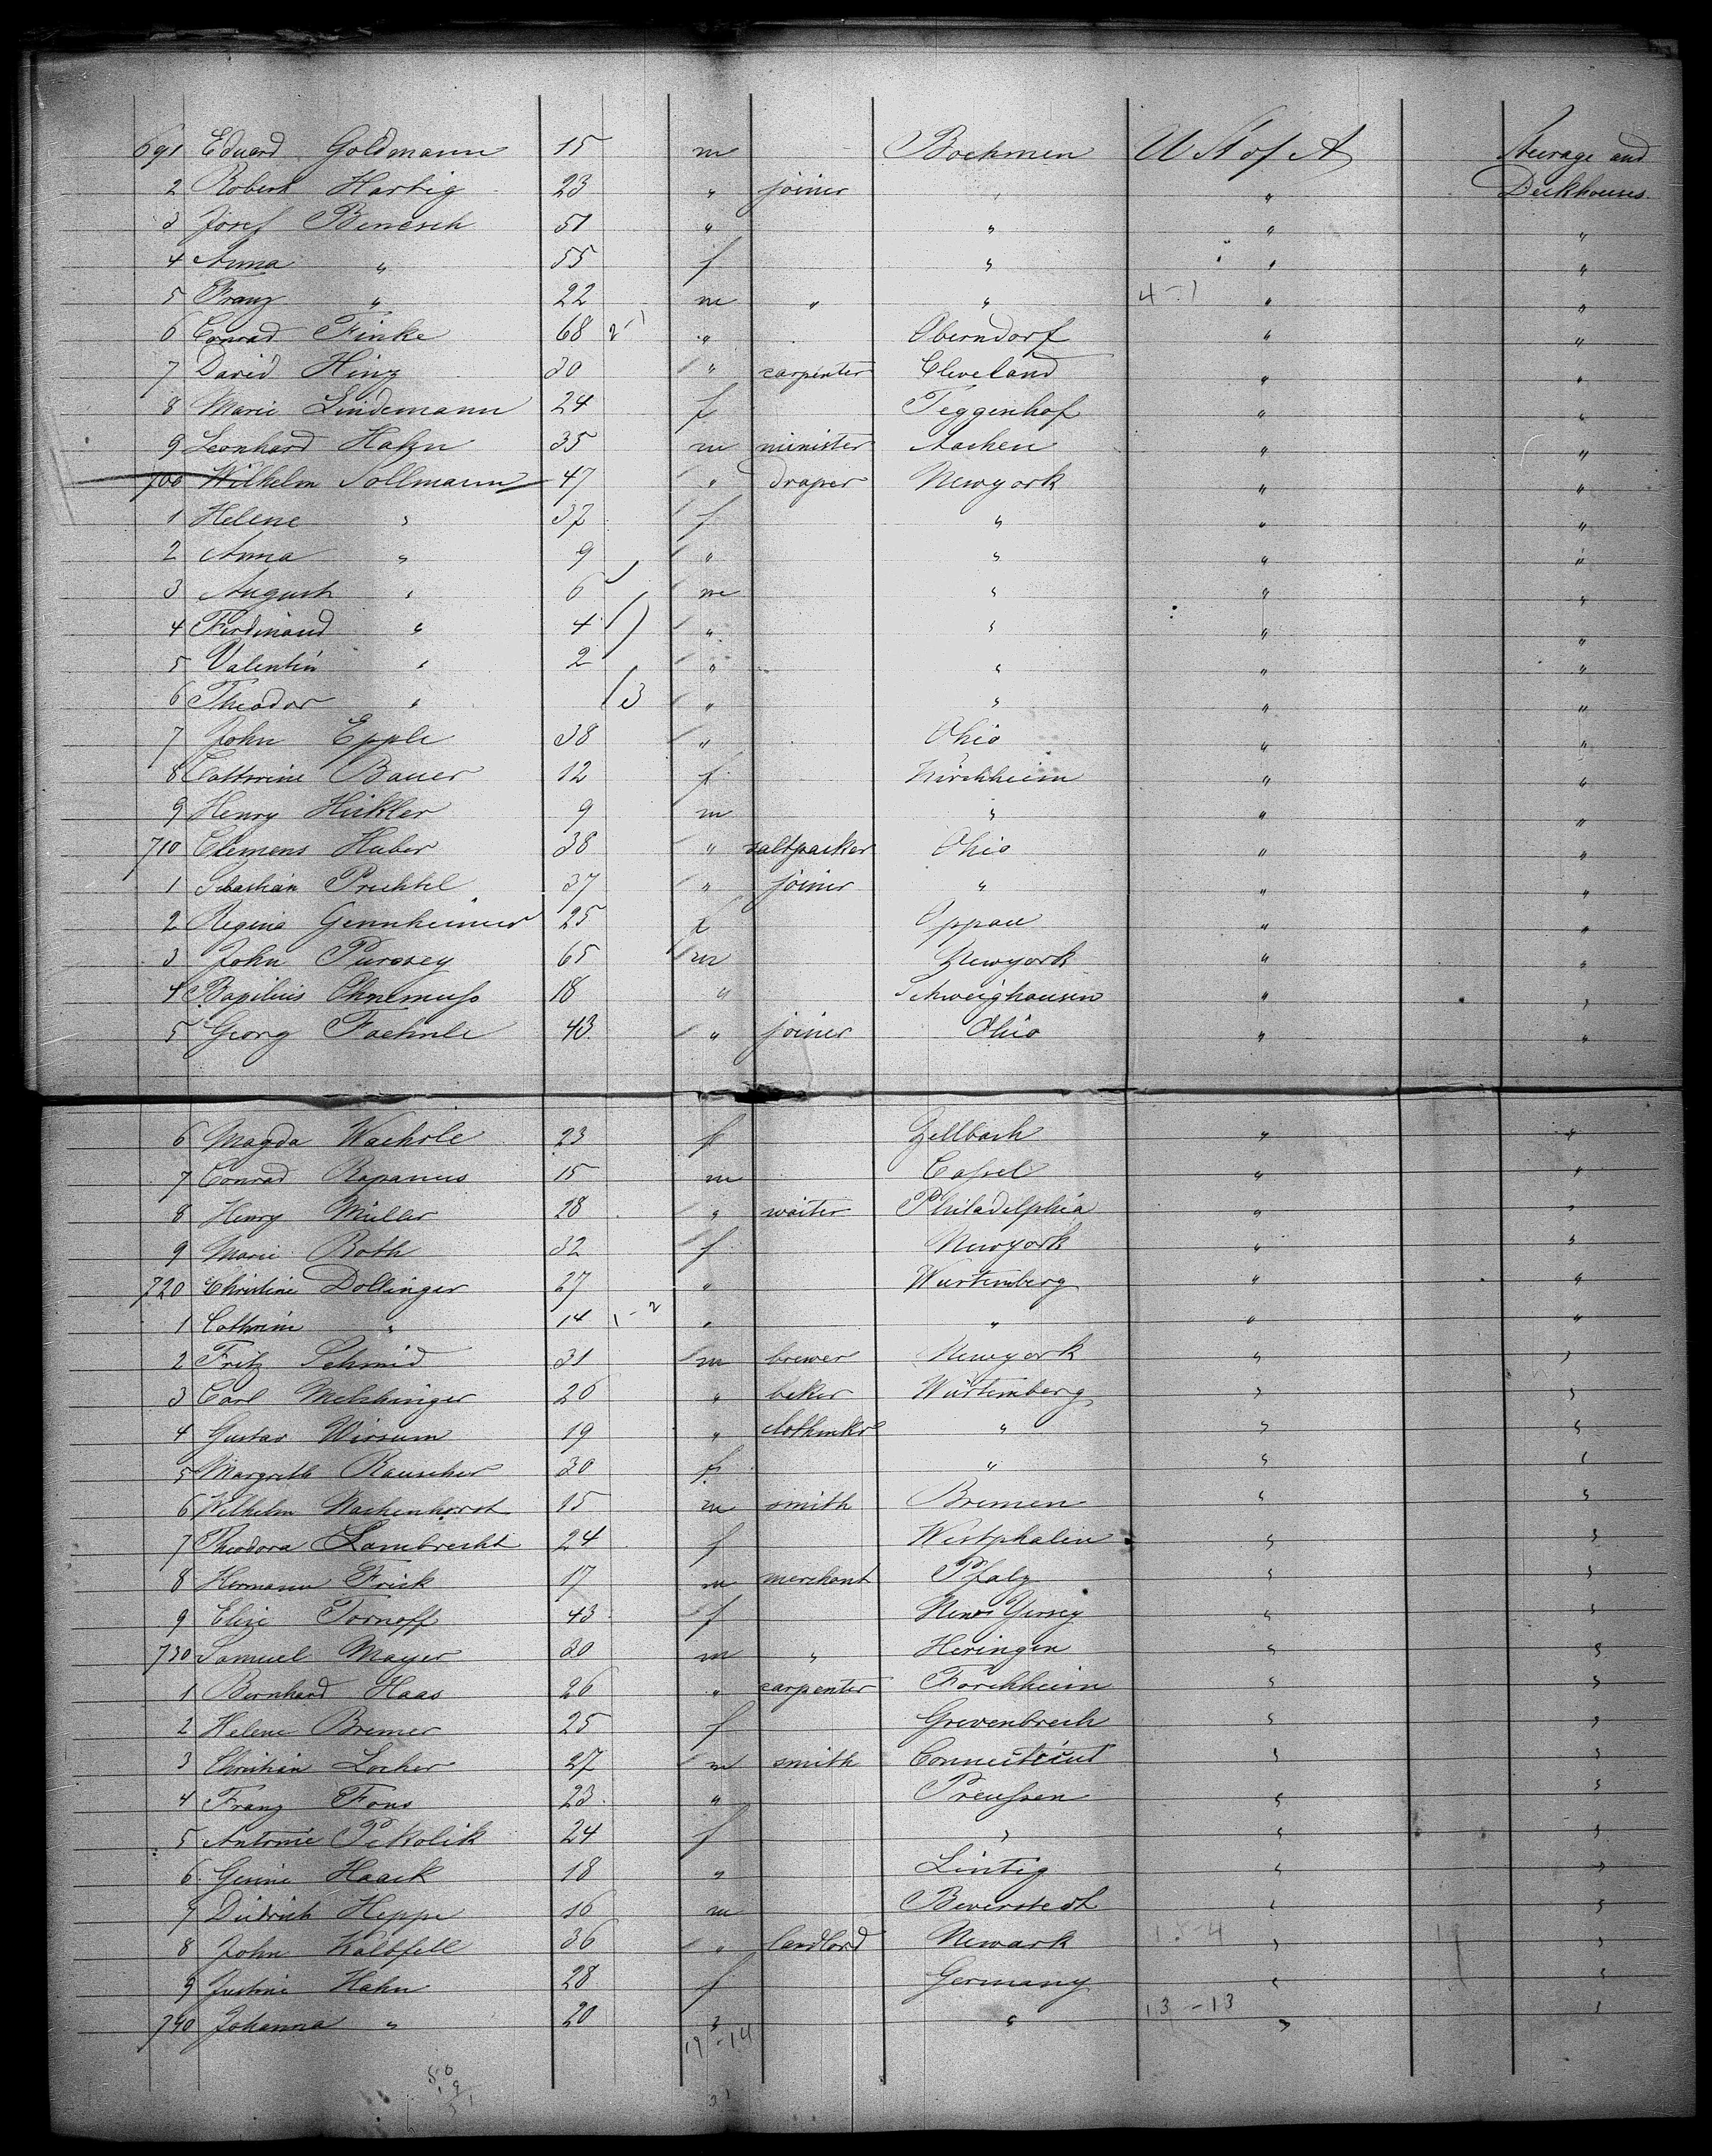 691 Eduard Goldmann 15 m Boehmen U St of A Steerage and
2 Robert Hartig 23 " joiner " " Deckhouses.
3 Josef Benesch 51 " " " "
4 Anna " 55 f " " "
5 Franz " 22 m " " 4-1 " "
6 Conrad Finke 68 2-1 " Oberndorf " "
7 David Hinz 30 " carpenter Cleveland " "
8 Marie Lindemann 24 f Teggenhof " "
9 Leonhard Hahn 35 m minister Aachen " "
700 Wilhelm Sollmann 47 " draper Newyork " "
1 Helene " 37 f " " "
2 Anna " 9 " " " "
3 August " 6 m " " "
4 Ferdinand " 4 " " " "
5 Valentin " 2 " " " "
6 Theodor " /3 " " " "
7 John Epple 38 " Ohio " "
8 Cathrine Bauer 12 f Kirchheim " "
9 Henry Hickler 9 m " " "
710 Clemens Huber 38 " saltpacker Ohio " "
1 Sebastian Prechtel 37 " joiner " " "
2 Regina Gennheimer 25 f Oppau " "
3 John Purssey 65 m Newyork " "
4 Basilius Ohnemuss 18 " Schweighausen " "
5 Georg Faehnle 43 " joiner Ohio " "
6 Magda Waehrle 23 f Zellbach " "
7 Conrad Rapanus 15 m Cassel " "
8 Henry Müller 28 " waiter Philadelphia " "
9 Marie Roth 32 f Newyork " "
720 Christine Dollinger 27 " Würtemberg " "
1 Cathrine " 14 1-2 " " " "
2 Fritz Schmid 31 m brewer Newyork " "
3 Carl Melchinger 26 " beker Würtemberg " "
4 Gustav Wirsum 19 " clothmkr " " "
5 Margreth Rauscher 30 f " " "
6 Wilhelm Wachenhorst 15 m smith Bremen " "
7 Theodora Lambrecht 24 f Westphalen " "
8 Hermann Frick 17 m merchant Pfalz " "
9 Elise Tornoff 43 f New Yersey " "
730 Samuel Mayer 30 m " Heringen " "
1 Bernhard Haas 26 " carpenter Forchheim " "
2 Helene Bremer 25 f Grevenbroich " "
3 Christian Locher 27 m smith Connecticut " "
4 Franz Fons 23 " Preussen " "
5 Antonie Pekolik 24 f " " "
6 Gesine Haack 18 " Lintig " "
7 Diedrich Heppe 16 m Beverstedt " "
8 John Kalbfell 36 " landlord Newark 18-4 " "
9 Justine Hahn 28 f Germany " "
740 Johanna " 20 " " 13-13 " "
19-14
50
19
31